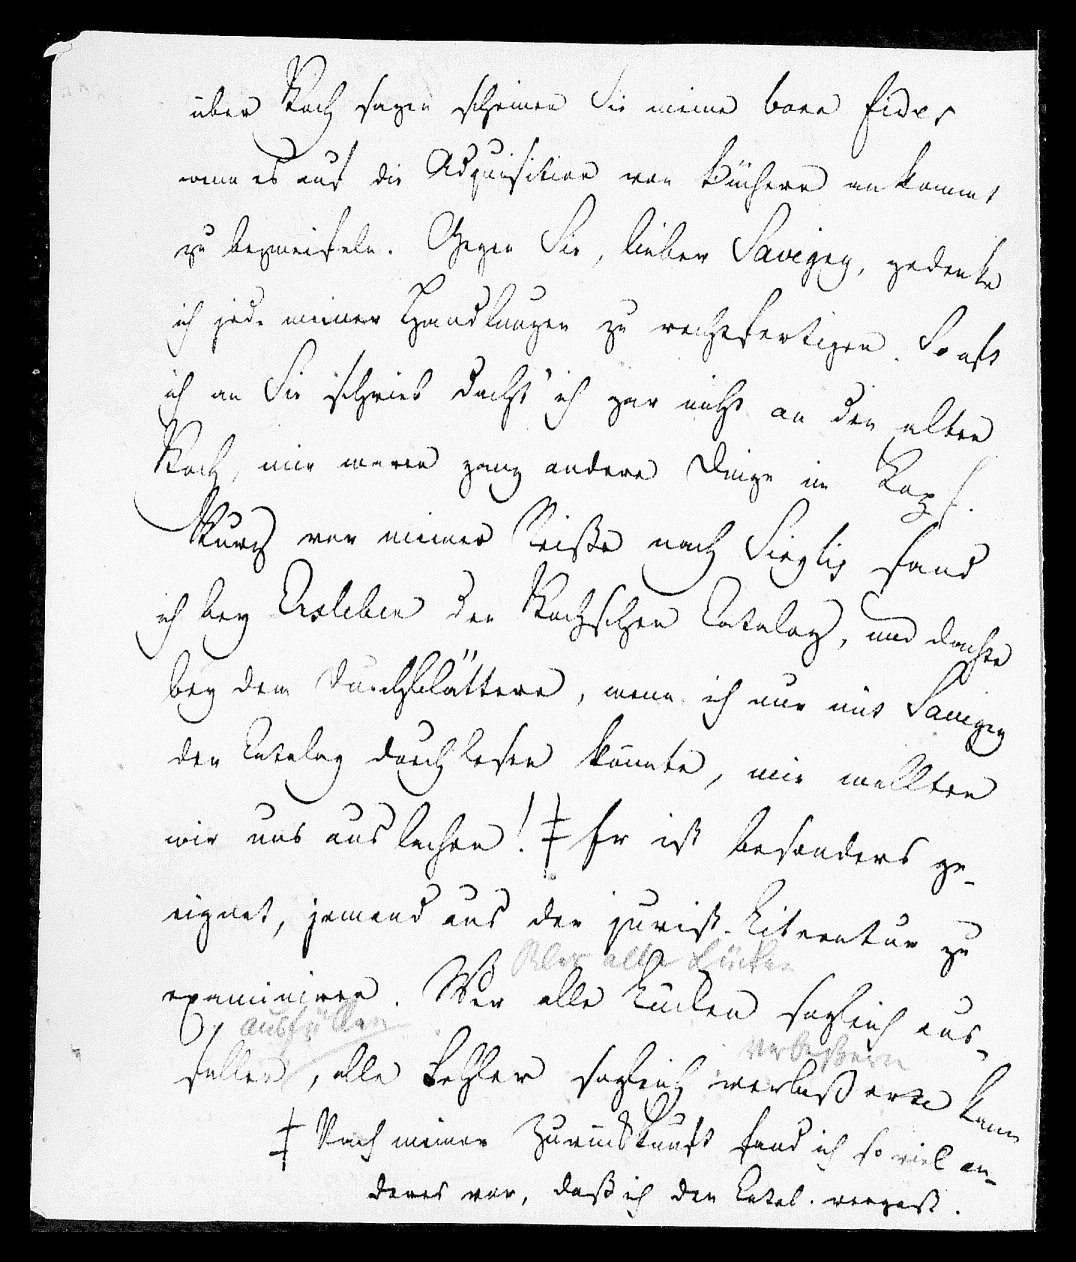 über Koch sagen scheinen Sie meine bona fides
wenn es auf die Adquisition von Büchern ankommt
zu bezweifeln. Gegen Sie, lieber Savigny, gedenke
ich jede meiner Handlungen zu rechtfertigen. So oft
ich an Sie schrieb dacht' ich gar nicht an den alten
Koch, mir waren ganz andere Dinge im Kopf.
Kurz vor meiner Reiße nach fand
ich bey Erxleben den Kochschen Catalog, und dachte
bey dem Durchblättern, wenn ich nur mit Savigny
den Catalog durchlesen könnte, wie wollten
wir uns auslachen! ‡ Er ist besonders ge-
eignet, jemand aus der jurist. Literatur zu
Wer alle Lücken
examiniren. Wer alle Lücken sogleich aus-
ausfüllen
verbeßern
füllen, alle Fehler sogleich verbeßern kann
‡ Nach meiner Zurückkunft fand ich so viel an-
deres vor, daß ich den Catal. vergaß.